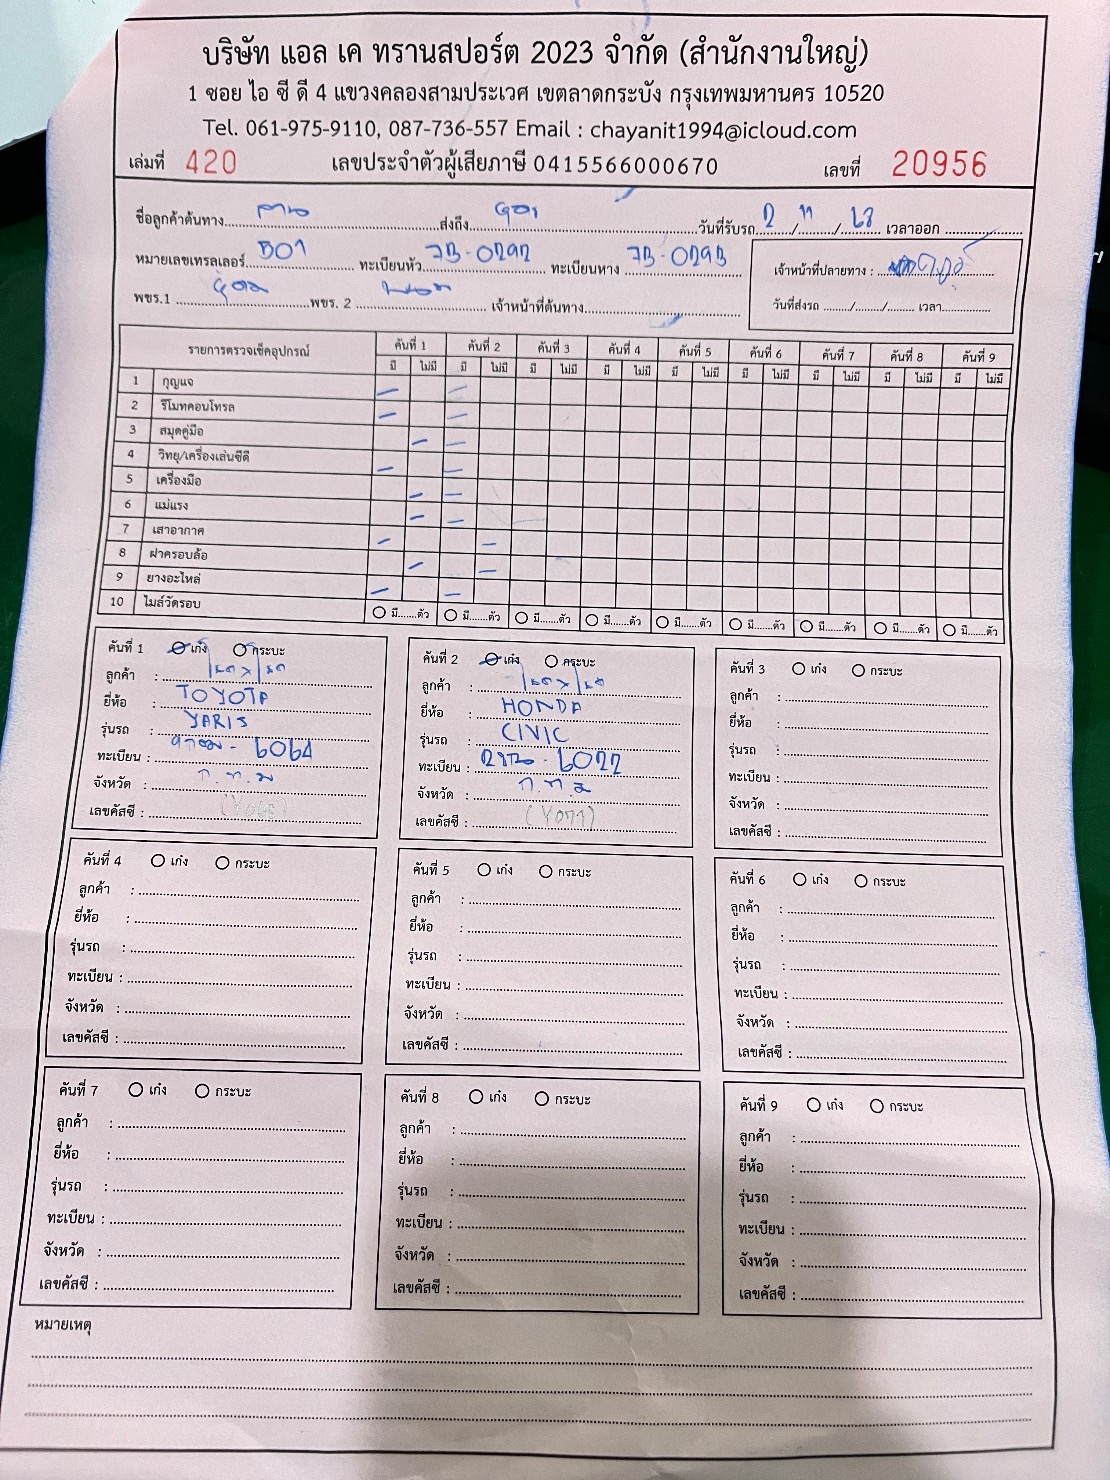 บริษัท แอล เค ทรานสปอร์ต 2023 จำกัด (สำนักงานใหญ่)
1 ซอย ไอ ซี ดี 4 แขวงคลองสามประเวศ เขตลาดกระบัง กรุงเทพมหานคร 10520
Tel. 061-975-9110, 087-736-557 Email : chayanit1994@icloud.com
เล่มที่ 420 เลขประจำตัวผู้เสียภาษี 0415566000670 เลขที่ 20956
ชื่อลูกค้าต้นทาง ส่งถึง วันที่รับรถ 2 / 11 / 68 เวลาออก
หมายเลขเทรลเลอร์ B01 ทะเบียนหัว ทะเบียนหาง
เจ้าหน้าที่ปลายทาง :
พขร.1 พขร. 2 เจ้าหน้าที่ต้นทาง
วันที่ส่งรถ ......../......../........ เวลา
รายการตรวจเช็คอุปกรณ์ คันที่ 1 คันที่ 2 คันที่ 3 คันที่ 4 คันที่ 5 คันที่ 6 คันที่ 7 คันที่ 8 คันที่ 9
มี ไม่มี มี ไม่มี มี ไม่มี มี ไม่มี มี ไม่มี มี ไม่มี มี ไม่มี มี ไม่มี มี ไม่มี
1 กุญแจ
2 รีโมทคอนโทรล
3 สมุดคู่มือ
4 วิทยุ/เครื่องเล่นซีดี
5 เครื่องมือ
6 แม่แรง
7 เสาอากาศ
8 ฝาครอบล้อ
9 ยางอะไหล่
10 ไมล์วัดรอบ มี.......ตัว มี.......ตัว มี.......ตัว มี.......ตัว มี.......ตัว มี.......ตัว มี.......ตัว มี.......ตัว มี.......ตัว
คันที่ 1 เก๋ง กระบะ
ลูกค้า :
ยี่ห้อ : TOYOTA
รุ่นรถ : YARIS
ทะเบียน : 6064
จังหวัด : ก.ท.ม
เลขคัสซี :
คันที่ 2 เก๋ง กระบะ
ลูกค้า :
ยี่ห้อ : HONDA
รุ่นรถ : CIVIC
ทะเบียน : 6022
จังหวัด : ก.ท.ม
เลขคัสซี :
คันที่ 3 เก๋ง กระบะ
ลูกค้า :
ยี่ห้อ :
รุ่นรถ :
ทะเบียน :
จังหวัด :
เลขคัสซี :
คันที่ 4 เก๋ง กระบะ
ลูกค้า :
ยี่ห้อ :
รุ่นรถ :
ทะเบียน :
จังหวัด :
เลขคัสซี :
คันที่ 5 เก๋ง กระบะ
ลูกค้า :
ยี่ห้อ :
รุ่นรถ :
ทะเบียน :
จังหวัด :
เลขคัสซี :
คันที่ 6 เก๋ง กระบะ
ลูกค้า :
ยี่ห้อ :
รุ่นรถ :
ทะเบียน :
จังหวัด :
เลขคัสซี :
คันที่ 7 เก๋ง กระบะ
ลูกค้า :
ยี่ห้อ :
รุ่นรถ :
ทะเบียน :
จังหวัด :
เลขคัสซี :
คันที่ 8 เก๋ง กระบะ
ลูกค้า :
ยี่ห้อ :
รุ่นรถ :
ทะเบียน :
จังหวัด :
เลขคัสซี :
คันที่ 9 เก๋ง กระบะ
ลูกค้า :
ยี่ห้อ :
รุ่นรถ :
ทะเบียน :
จังหวัด :
เลขคัสซี :
หมายเหตุ